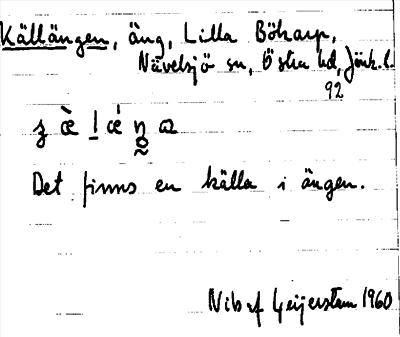 Källängen, äng, Lilla Bökarp,
Nävelsjö sn, Östra hd, Jönk. l.
92
Det finns en källa i ängen.
Nils af Geijerstam 1960